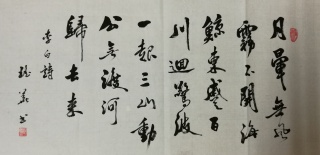 月暈無風
霧不開海
鯨東蹙百
川迴驚波
一起三山動
公無渡河
歸去來
李白詩
書